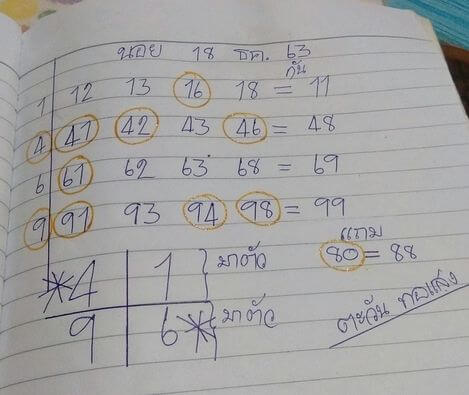 นอย 18 ธค. 63
กัน
1 12 13 16 18 = 11
4 41 42 43 46 = 48
6 61 62 63 68 = 69
9 91 93 94 98 = 99
แถม
80 = 88
*4 1 } มาตัว
9 6* } มาตัว
ตะวัน ทอแสง